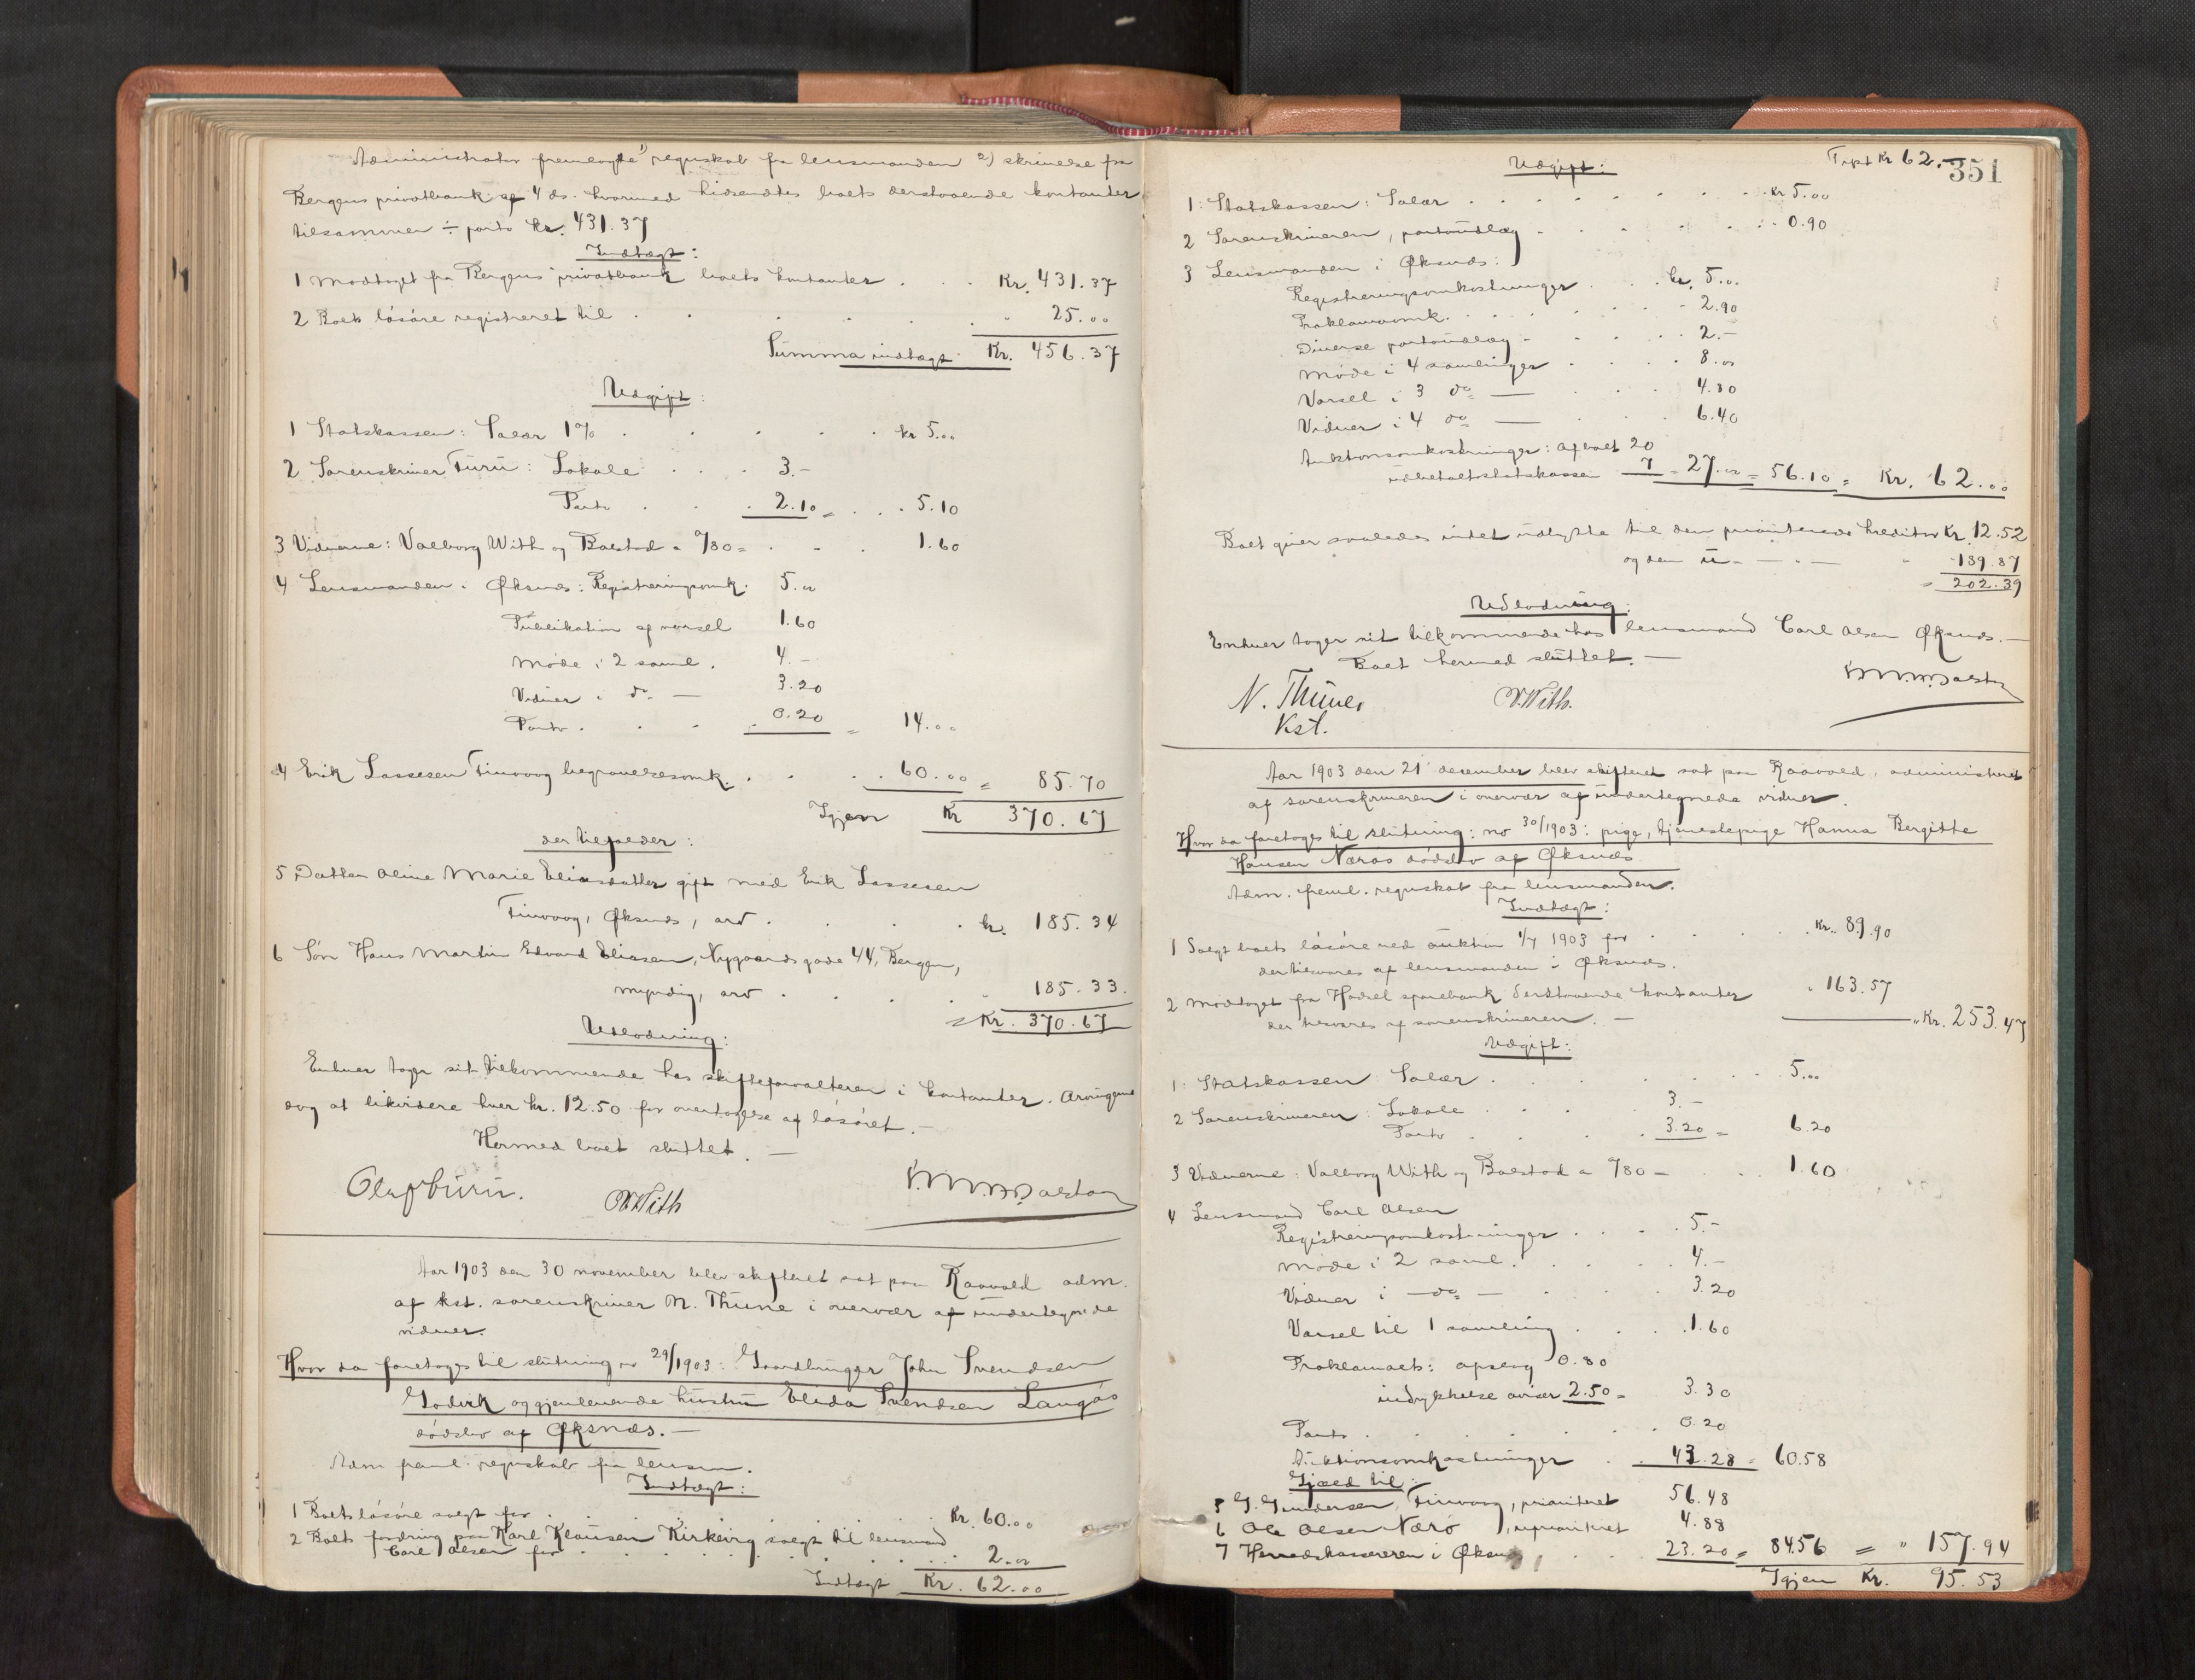 Administrator fremlagde 1) regnskab fra lensmanden 2) skrivelse fra
Bergens privatbank af 4 ds. hvormed hidsendtes boets derstaaende kontanter
tilsammen ÷ porto kr. 431.37
Indtægt:
1 Modtaget fra Bergens privatbank boets kontanter . . . Kr. 431.37
2 Boets løsøre registreret til . . . . . " 25.00
Summa indtægt Kr. 456.37
Udgift:
1 Statskassen: Salær 1% . . . . . kr 5.00
2 Sorenskriver Furu: Lokale . . . 3.-
Porto . . . 2.10 = . . . 5.10
3 Vidnerne: Valborg With og Balstad a 0/80 = . . . 1.60
4 Lensmanden i Øksnes: Registreringsomk. 5.00
Publikation af varsel 1.60
Møde i 2 saml. 4.-
Vidner i do — 3.20
Porto . . . 0.20 = 14.00
4 Erik Lassesen Finvaag begravelsesomk. . . . 60.00 = 85.70
Igjen Kr 370.67
der tilfalder:
5 Datter Oline Marie Eliasdatter gift med Erik Lassesen
Finvaag, Øksnes, arv . . . . kr. 185.34
6 Søn Hans Martin Edvard Eliassen, Nygaardsgade 44, Bergen,
myndig, arv . . . . " 185.33.
= Kr. 370.67
Udlodning:
Enhver tager sit tilkommende hos skifteforvalteren i kontanter. Arvingerne
dog at likvidere hver kr. 12.50 for overtagelse af løsøret. —
Hermed boet sluttet. —
Olaf Furu. V. With
Aar 1903 den 30 november blev skifteret sat paa Raavold adm.
af kst. sorenskriver N. Thune i overvær af undertegnede
vidner.
Hvor da foretages til slutning no 29/1903: Gaardbruger John Svendsen
og gjenlevende hustru Elida Svendsen Langø
dødsbo af Øksnes. —
Adm freml. regnskab fra lensm.
Indtægt:
1 Boets løsøre solgt for . . . . . Kr. 60.00
2 Boets fordring paa Karl Klausen Kirkevig solgt til lensmand
Carl Olsen for . . . . . . 2.00
Indtægt Kr. 62.00
Udgift: Trpt Kr 62.— 351
1. Statskassen: Salær . . . . . . Kr 5.00
2 Sorenskriveren, portoudlæg . . . . . 0.90
3 Lensmanden i Øksnes:
Registreringsomkostninger . . . kr. 5.00
Proklamaomk. . . . . . 2.90
Diverse portoudlæg - . . . 2.-
Møde i 4 samlinger . . . 8.00
Varsel i 3 do — . . . 4.80
Vidner i 4 do — . . . 6.40
Auktionsomkostninger: af boet 20
udbetalt statskassen 7 = 27.00 = 56.10 = Kr. 62.00
Boet giver saaledes intet udbytte til den prioriterede kreditor Kr. 12.52
og den u- — " — " 189.87
= 202.39
Udlodning:
Enhver tager sit tilkommende hos lensmand Carl Olsen Øksnes. —
Boet hermed sluttet. —
N. Thune, V. With.
Kst.
Aar 1903 den 21 december blev skifteret sat paa Raavold, administreret
af sorenskriveren i overvær af undertegnede vidner.
Hvor da foretages til slutning: no 30/1903: pige, tjenestepige Hanna Bergitte
Hansen Nærøs dødsbo af Øksnes
Adm. freml. regnskab fra lensmanden.
Indtægt:
1 Solgt boets løsøre ved auktion 1/7 1903 for . . . . Kr. 89.90
der tilsvares af lensmanden i Øksnes.
2 Modtaget fra Hadsel sparebank derstaaende kontanter " 163.57
der tilsvares af sorenskriveren. — " Kr. 253.47
Udgift:
1. Statskassen Salær . . . . . . 5.00
2 Sorenskriveren: Lokale . . . . 3.-
Porto . . . . 3.20 = 6.20
3 Vidnerne: Valborg With og Balstad a 0/80 = . . 1.60
4 Lensmand Carl Olsen
Registreringsomkostninger . . . . 5.-
Møde i 2 saml. . . . . 4.-
Vidner i — do — . . . 3.20
Varsel til 1 samling . . . 1.60
Proklamaets: opslag 0.80
indrykkelse aviser 2.50 = 3.30
Porto . . . . . . 0.20
Auktionsomkostninger . . 43.28 = 60.58
Gjæld til:
5 G. Gundersen, Finvaag, prioriteret 56.48
6 Ole Olsen Nærø, uprioriteret 4.88
7 Herredskassereren i Øksnes . . 23.20 = 84.56 = " 157.94
Igjen Kr. 95.53